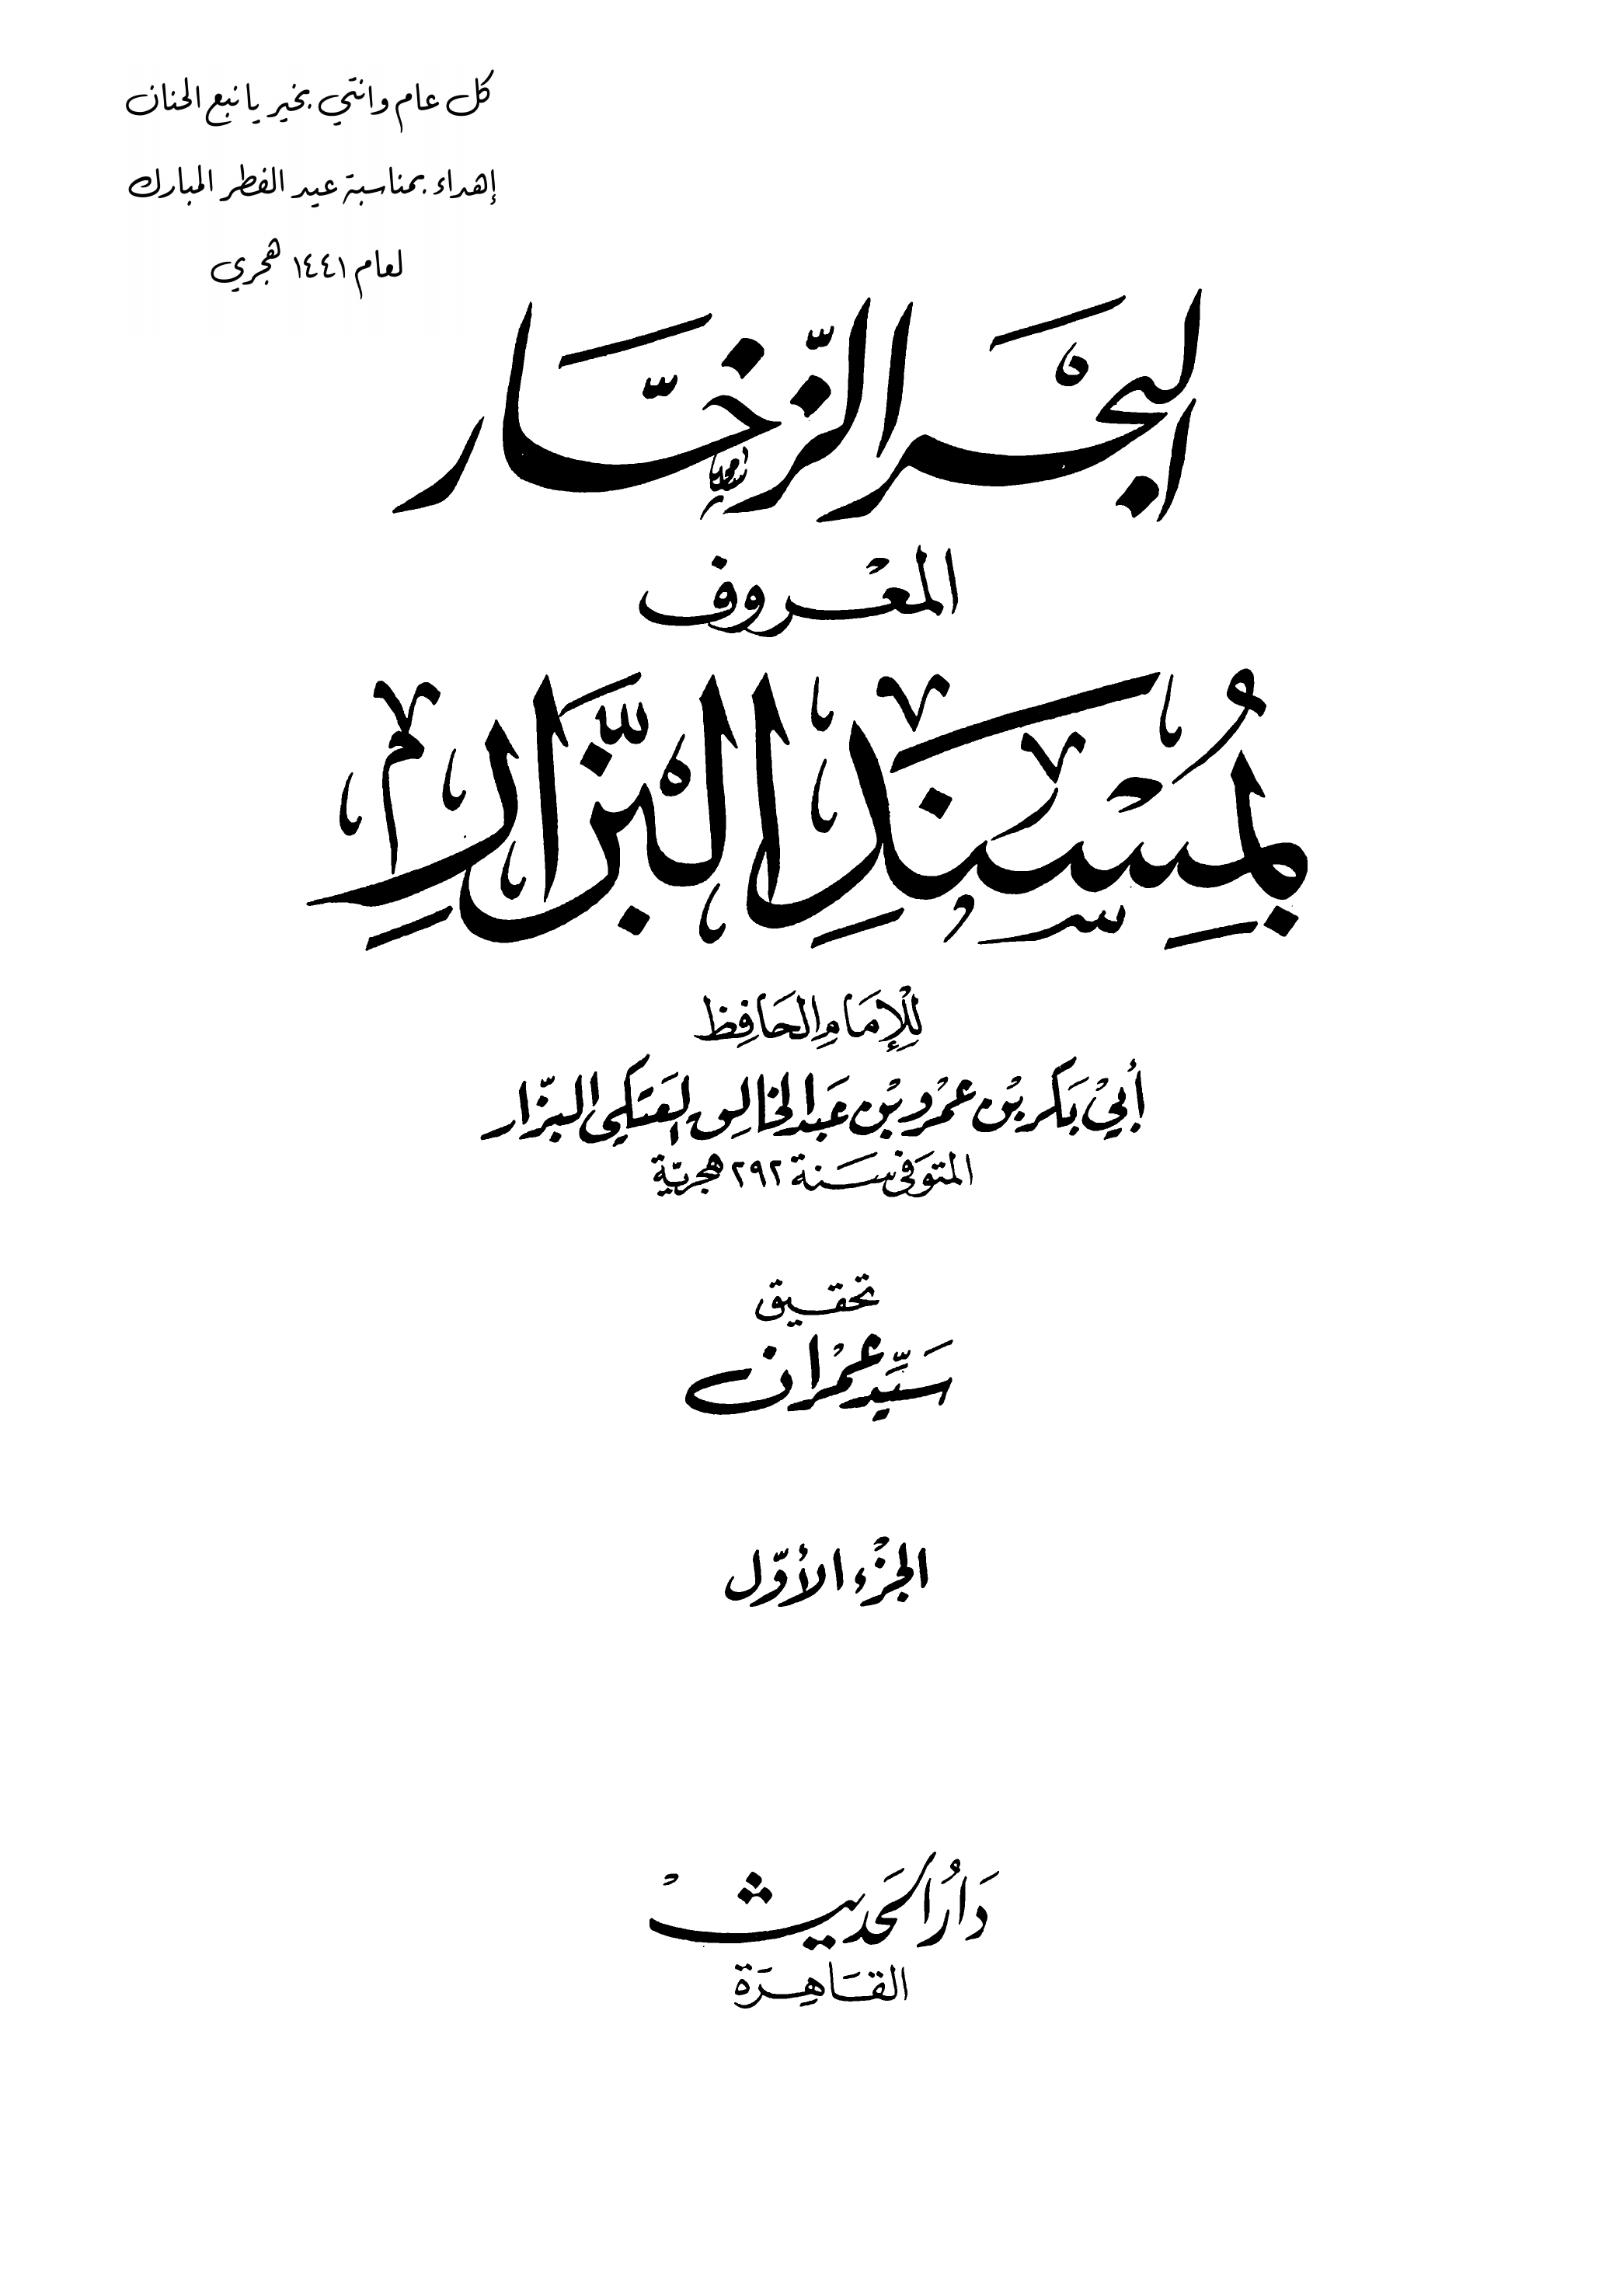 كل عام وانتي بخير يا نبع الحنان
إهداء بمناسبة عيد الفطر المبارك
لعام ١٤٤١ هجري
البَحْر الزّخَّار
المعْروف
بمُسْنَدِ البَزَّارِ
لِلْإمَامِ الحَافِظ
أبيْ بَكر بْن عَمْرو بْن عَبد الخالِق العَتَكِي البزّار
المتوَفى سَنة ٢٩٢ هجريّة
تحقيق
سَيِّد عمْران
الجزْء الأوّل
دَارُ الحَديثْ
القَاهِرَة